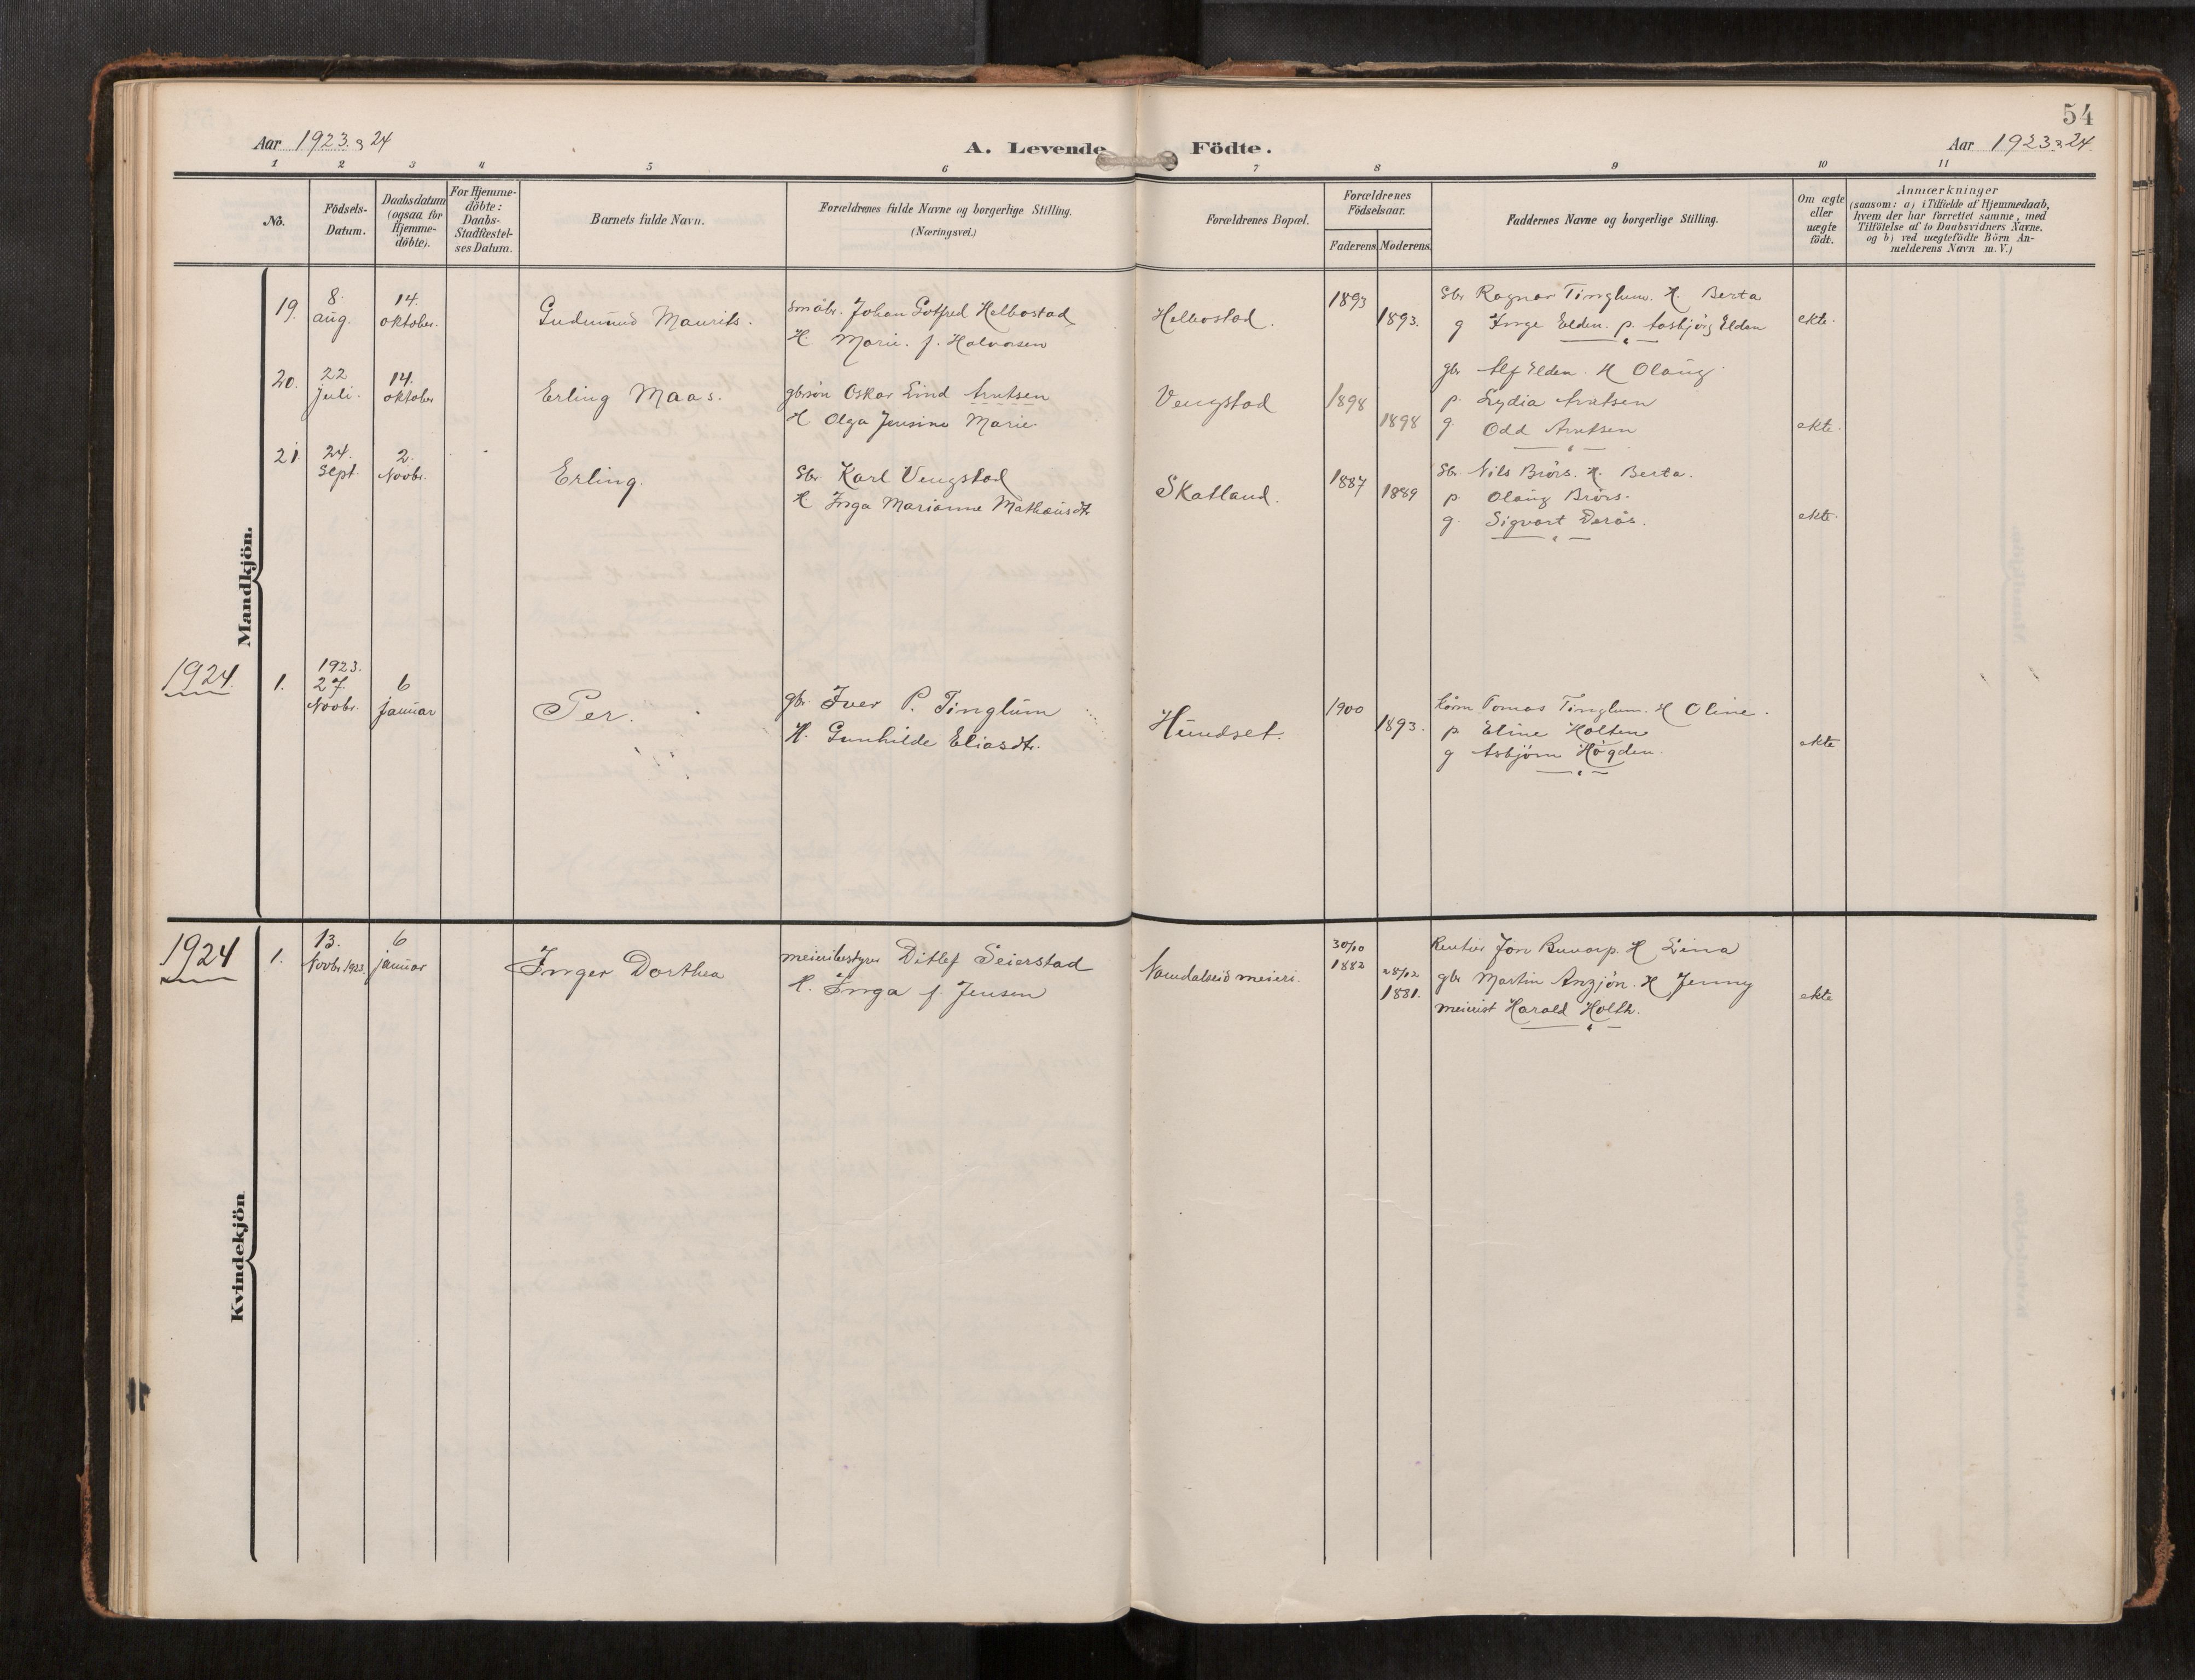 54
Aar 1923 & 24
A. Levende Födte.
Aar 1923 & 24.
1 2 3 4 5 6 7 8 9 10 11
No.
Födsels-
Datum.
Daabsdatum
(ogsaa for
Hjemme-
döbte).
For Hjemme-
döbte:
Daabs-
Stadfæstel-
ses Datum.
Barnets fulde Navn.
Forældrenes fulde Navne og borgerlige Stilling.
(Næringsvei.)
Forældrenes Bopæl.
Forældrenes
Födselsaar.
Faderens Moderens.
Faddernes Navne og borgerlige Stilling.
Om ægte
eller
uægte
födt.
Anmærkninger
(saasom: a) i Tilfælde af Hjemmedaab,
hvem der har forrettet samme, med
Tilföielse af to Daabsvidners Navne.
og b) ved uægtefödte Börn An-
melderens Navn m. V.)
Mandkjön.
19.
8.
aug.
14.
oktober.
Gudmund Maurits.
småbr. Johan Gotfred Helbostad
H. Marie f. Halvorsen
Helbostad.
1893
1893.
Gbr Ragnar Tinglum. H. Berta
g Inge Elden. p. Aasbjörg Elden
ekte.
20.
22
juli.
14.
oktober
Erling Maas.
gbrsön Oskar Eind Arntsen
H Olga Jensine Marie.
Vengstad
1898
1898
gbr Alf Elden. H Olaug.
p. Lydia Arntsen
g. Odd Arntsen
ekte.
21.
24.
Sept.
2.
Novbr.
Erling.
Gbr Karl Vengstad
H Inga Marianne Matheusdtr
Skatland.
1887
1889
Gbr. Nils Brörs. H. Berta.
p Olaug Brörs.
g. Sigvart Derås.
ekte.
1924.
1.
1923.
27.
Novbr.
6
januar
Per.
gbr. Iver P. Tinglum
H. Gunhilde Eliasdtr.
Hundset.
1900
1893.
Tomas Tinglum. H Oline.
p Eline Holten
g Asbjörn Högden.
ekte
Kvindekjön
1924
1.
13.
Novbr 1923.
6
januar
Inger Dorthea
meieribestyrer Ditlef Seierstad
H. Inga f. Jensen
Namdalseid meieri.
30/10
1882
28/12
1881.
Rentier Jon Buvarp. H Lina
gbr Martin Anzjön. H Jenny
meierist Harald Holth.
ekte